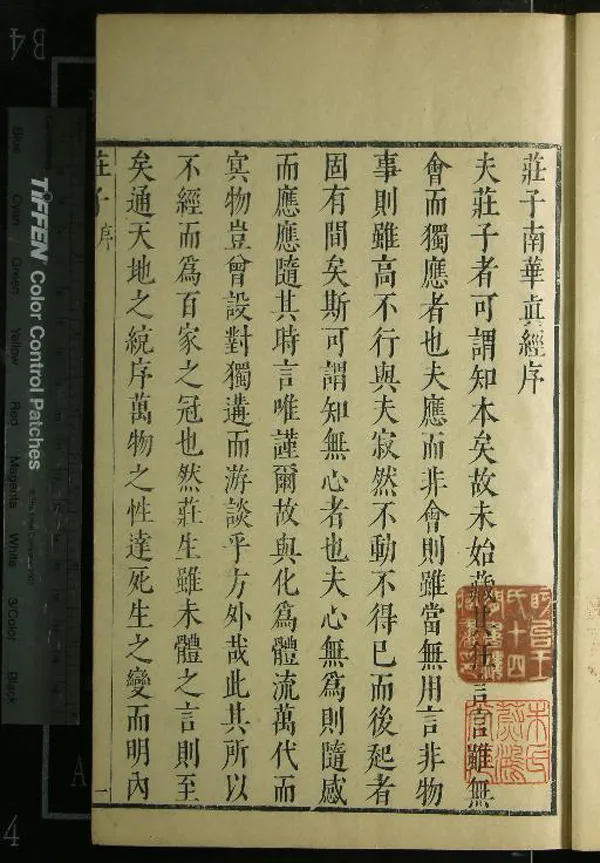 莊子南華真經序
夫莊子者可謂知本矣故未始藏其狂言言雖無
會而獨應者也夫應而非會則雖當無用言非物
事則雖高不行與夫寂然不動不得已而後起者
固有間矣斯可謂知無心者也夫心無為則隨感
而應應隨其時言唯謹爾故與化為體流萬代而
冥物豈曾設對獨遘而游談乎方外哉此其所以
不經而為百家之冠也然莊生雖未體之言則至
矣通天地之統序萬物之性達死生之變而明內
莊子 序
一
TIFFEN Color Control Patches
Blue
Cyan
Green
Yellow
Red
Magenta
White
3/Color
Black
B4
A
4